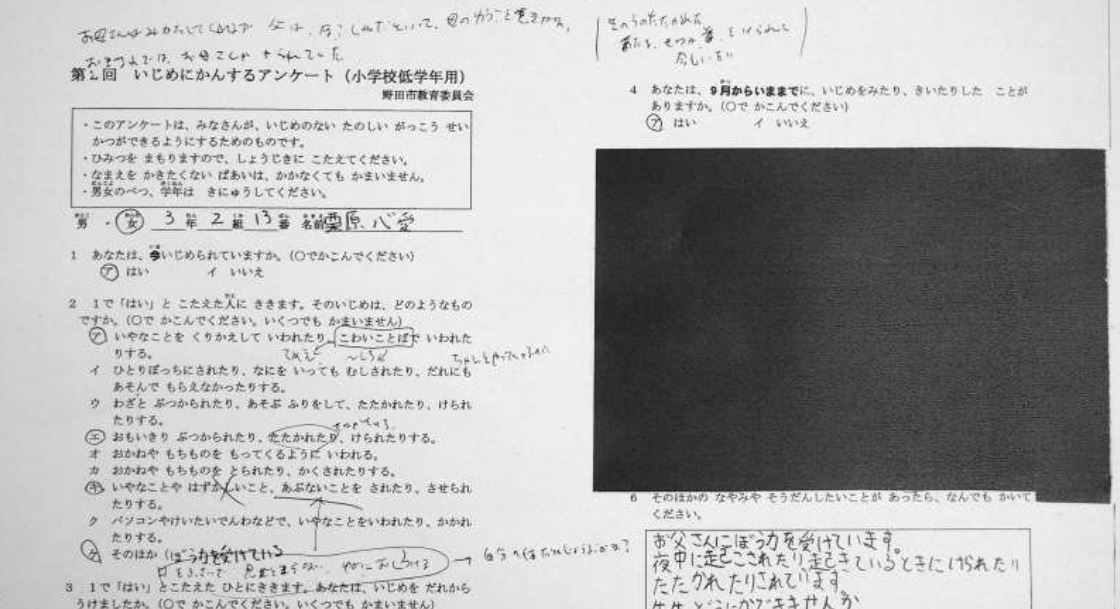 お母さんは
第2回 いじめにかんするアンケート（小学校低学年用）
野田市教育委員会
・このアンケートは、みなさんが、いじめのない たのしい がっこう せい
かつができるようにするためのものです。
・ひみつを まもりますので、しょうじきに こたえてください。
・なまえを かきたくない ばあいは、かかなくても かまいません。
・男女のべつ、学年は きにゅうしてください。
男 ・ 女 3 年 2 組 13 番 名前 栗原 心愛
1 あなたは、今いじめられていますか。（○でかこんでください）
ア はい イ いいえ
2 1で「はい」と こたえた人に ききます。そのいじめは、どのようなもの
ですか。（○で かこんでください。いくつでも かまいません）
ア いやなことを くりかえして いわれたり、こわいことばで いわれた
りする。
イ ひとりぼっちにされたり、なにを いっても むしされたり、だれにも
あそんで もらえなかったりする。
ウ わざと ぶつかられたり、あそぶ ふりをして、たたかれたり、けられ
たりする。
エ おもいきり ぶつかられたり、たたかれたり、けられたりする。
オ おかねや もちものを もってくるように いわれる。
カ おかねや もちものを とられたり、かくされたりする。
キ いやなことや はずかしいこと、あぶないことを されたり、させられ
たりする。
ク パソコンやけいたいでんわなどで、いやなことをいわれたり、かかれ
たりする。
ケ そのほか（ぼう力を受けている
3 1で「はい」とこたえた ひとにききます。あなたは、いじめを だれから
うけましたか。（○で かこんでください。いくつでも かまいません）
4 あなたは、9月からいままでに、いじめをみたり、きいたりした ことが
ありますか。（○で かこんでください）
ア はい イ いいえ
6 そのほかの なやみや そうだんしたいことが あったら、なんでも かいて
ください。
お父さんにぼう力を受けています。
夜中に起こされたり起きているときにけられたり
たたかれたりされています。
先生、どうにかできませんか